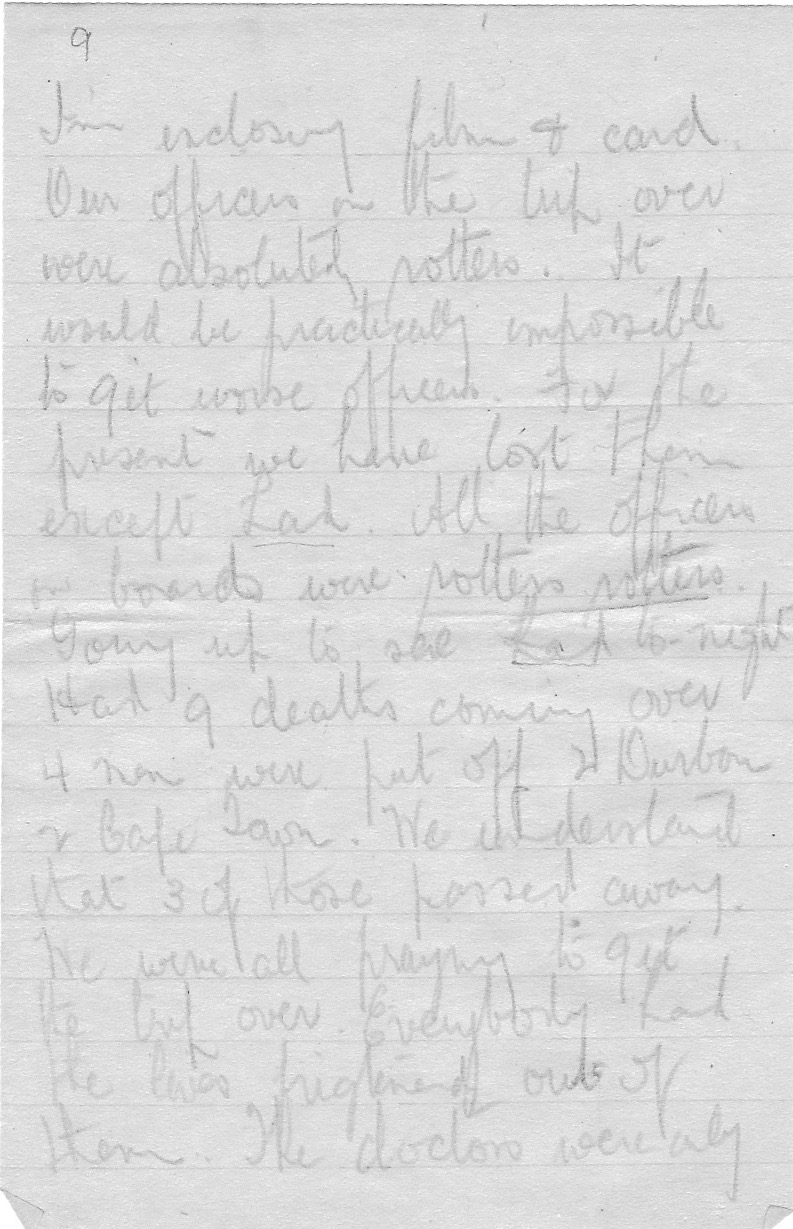 9
I'm enclosing film & card.
Our officers on the trip over
were absolutely rotters. It
would be practically impossible
to get worse officers. For the
present we have lost them
except Lad. All the officers
on boards were rotters rotters.
Going up to see Lad to-night
Had 9 deaths coming over
4 men were put off 2 Durban
2 Cape Town. We understand
that 3 of those passed away.
We were all praying to get
the trip over. Everybody had
the lives frightened out of
them.. The doctors were only